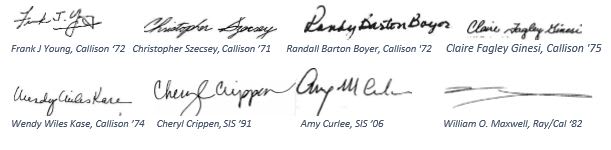 Frank J. Young Christopher Szecsey Randy Barton Boyer Claire Fagley Ginesi
Frank J Young, Callison '72 Christopher Szecsey, Callison '71 Randall Barton Boyer, Callison '72 Claire Fagley Ginesi, Callison '75
Wendy Wiles Kase Cheryl Crippen Amy M Curlee
Wendy Wiles Kase, Callison '74 Cheryl Crippen, SIS '91 Amy Curlee, SIS '06 William O. Maxwell, Ray/Cal '82